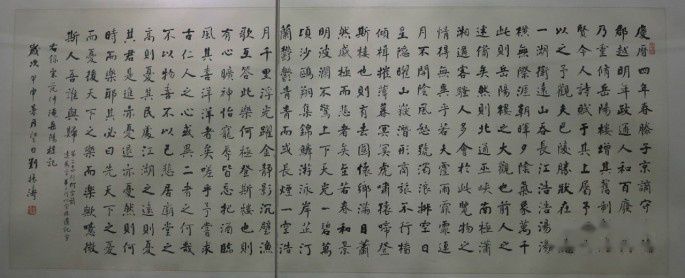 慶曆四年春滕子京謫守
郡越明年政通人和百廢
乃重脩岳陽樓增其舊制
賢今人詩賦于其上屬予
以之予觀夫巴陵勝狀在
一湖銜遠山吞長江浩浩湯湯
橫無際涯朝暉夕陰氣象萬千
此則岳陽樓之大觀也前人之
述備矣然則北通巫峽南極瀟
湘遷客騷人多會於此覽物之
情得無異乎若夫霪雨霏霏連
月不開陰風怒號濁浪排空日
星隱曜山岳潛形商旅不行檣
傾楫摧薄暮冥冥虎嘯猿啼登
斯樓也則有去國懷鄉滿目蕭
然感極而悲者矣至若春和景
明波瀾不驚上下天光一碧萬
頃沙鷗翔集錦鱗游泳岸芷汀
蘭鬱鬱青青而或長煙一空浩
月千里浮光躍金靜影沉璧漁
歌互答此樂何極登斯樓也則
有心曠神怡寵辱皆忘把酒臨
風其喜洋洋者矣嗟乎予嘗求
古仁人之心或異二者之何哉
不以物喜不以己悲居廟堂之
高則憂其民處江湖之遠則憂
其君是進亦憂退亦憂然則何
時而樂耶其必曰先天下之憂
而憂後天下之樂而樂歟噫微
斯人吾誰與歸
右錄宋范仲淹岳陽樓記
歲次甲申暮月望日劉濤